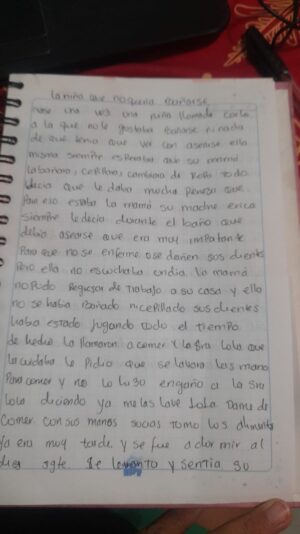 La niña que no queria Bañarse
rase una vez una niña llamada Carla
a la que no le gustaba Bañarse ni nada
de que tenia que ver con asearse ella
misma siempre esperaba que su mamá
la bañara, cepillara, cambiara de Ropa todo
decia que le daba mucha pereza que
Para eso estaba la mamá su madre erica
siempre le decia durante el baño que
debia asearse que era muy importante
Para que no se enferme o se dañen sus dientes
Pero ella no escuchaba un dia la mamá
no Pudo Regresar de Trabajo a su casa y ella
no se habia Bañado ni cepillado sus dientes
habia estado jugando todo el tiempo
la llamaron a comer y la Sra Lola que
la cuidaba le Pidio que se lavara las mano
Para comer y no lo hizo engaño a la Sra
Lola diciendo ya me las lave Lola. Dame de
Comer con sus manos sucias tomo los alimentos
Ya era muy tarde y se fue a dormir al
dia sgte. Se levanto y sentia su